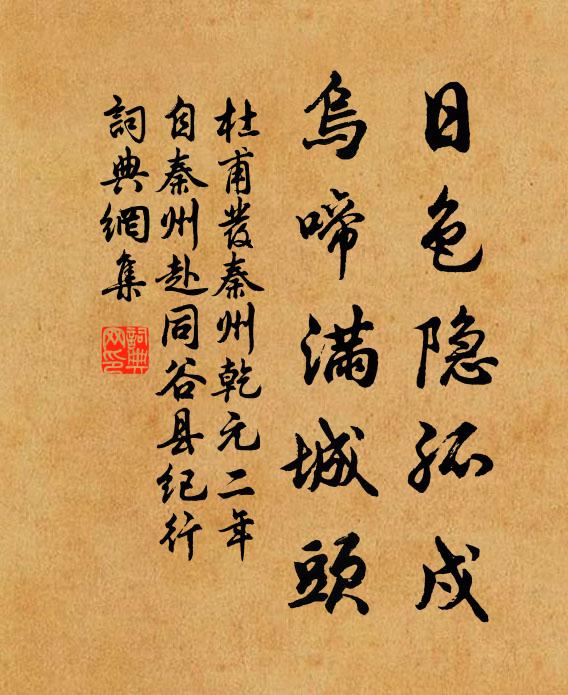 日色隐孤戍
烏啼滿城頭
杜甫發秦州乾元二年
自秦州赴同谷县紀行
詞典網集
詞典网印